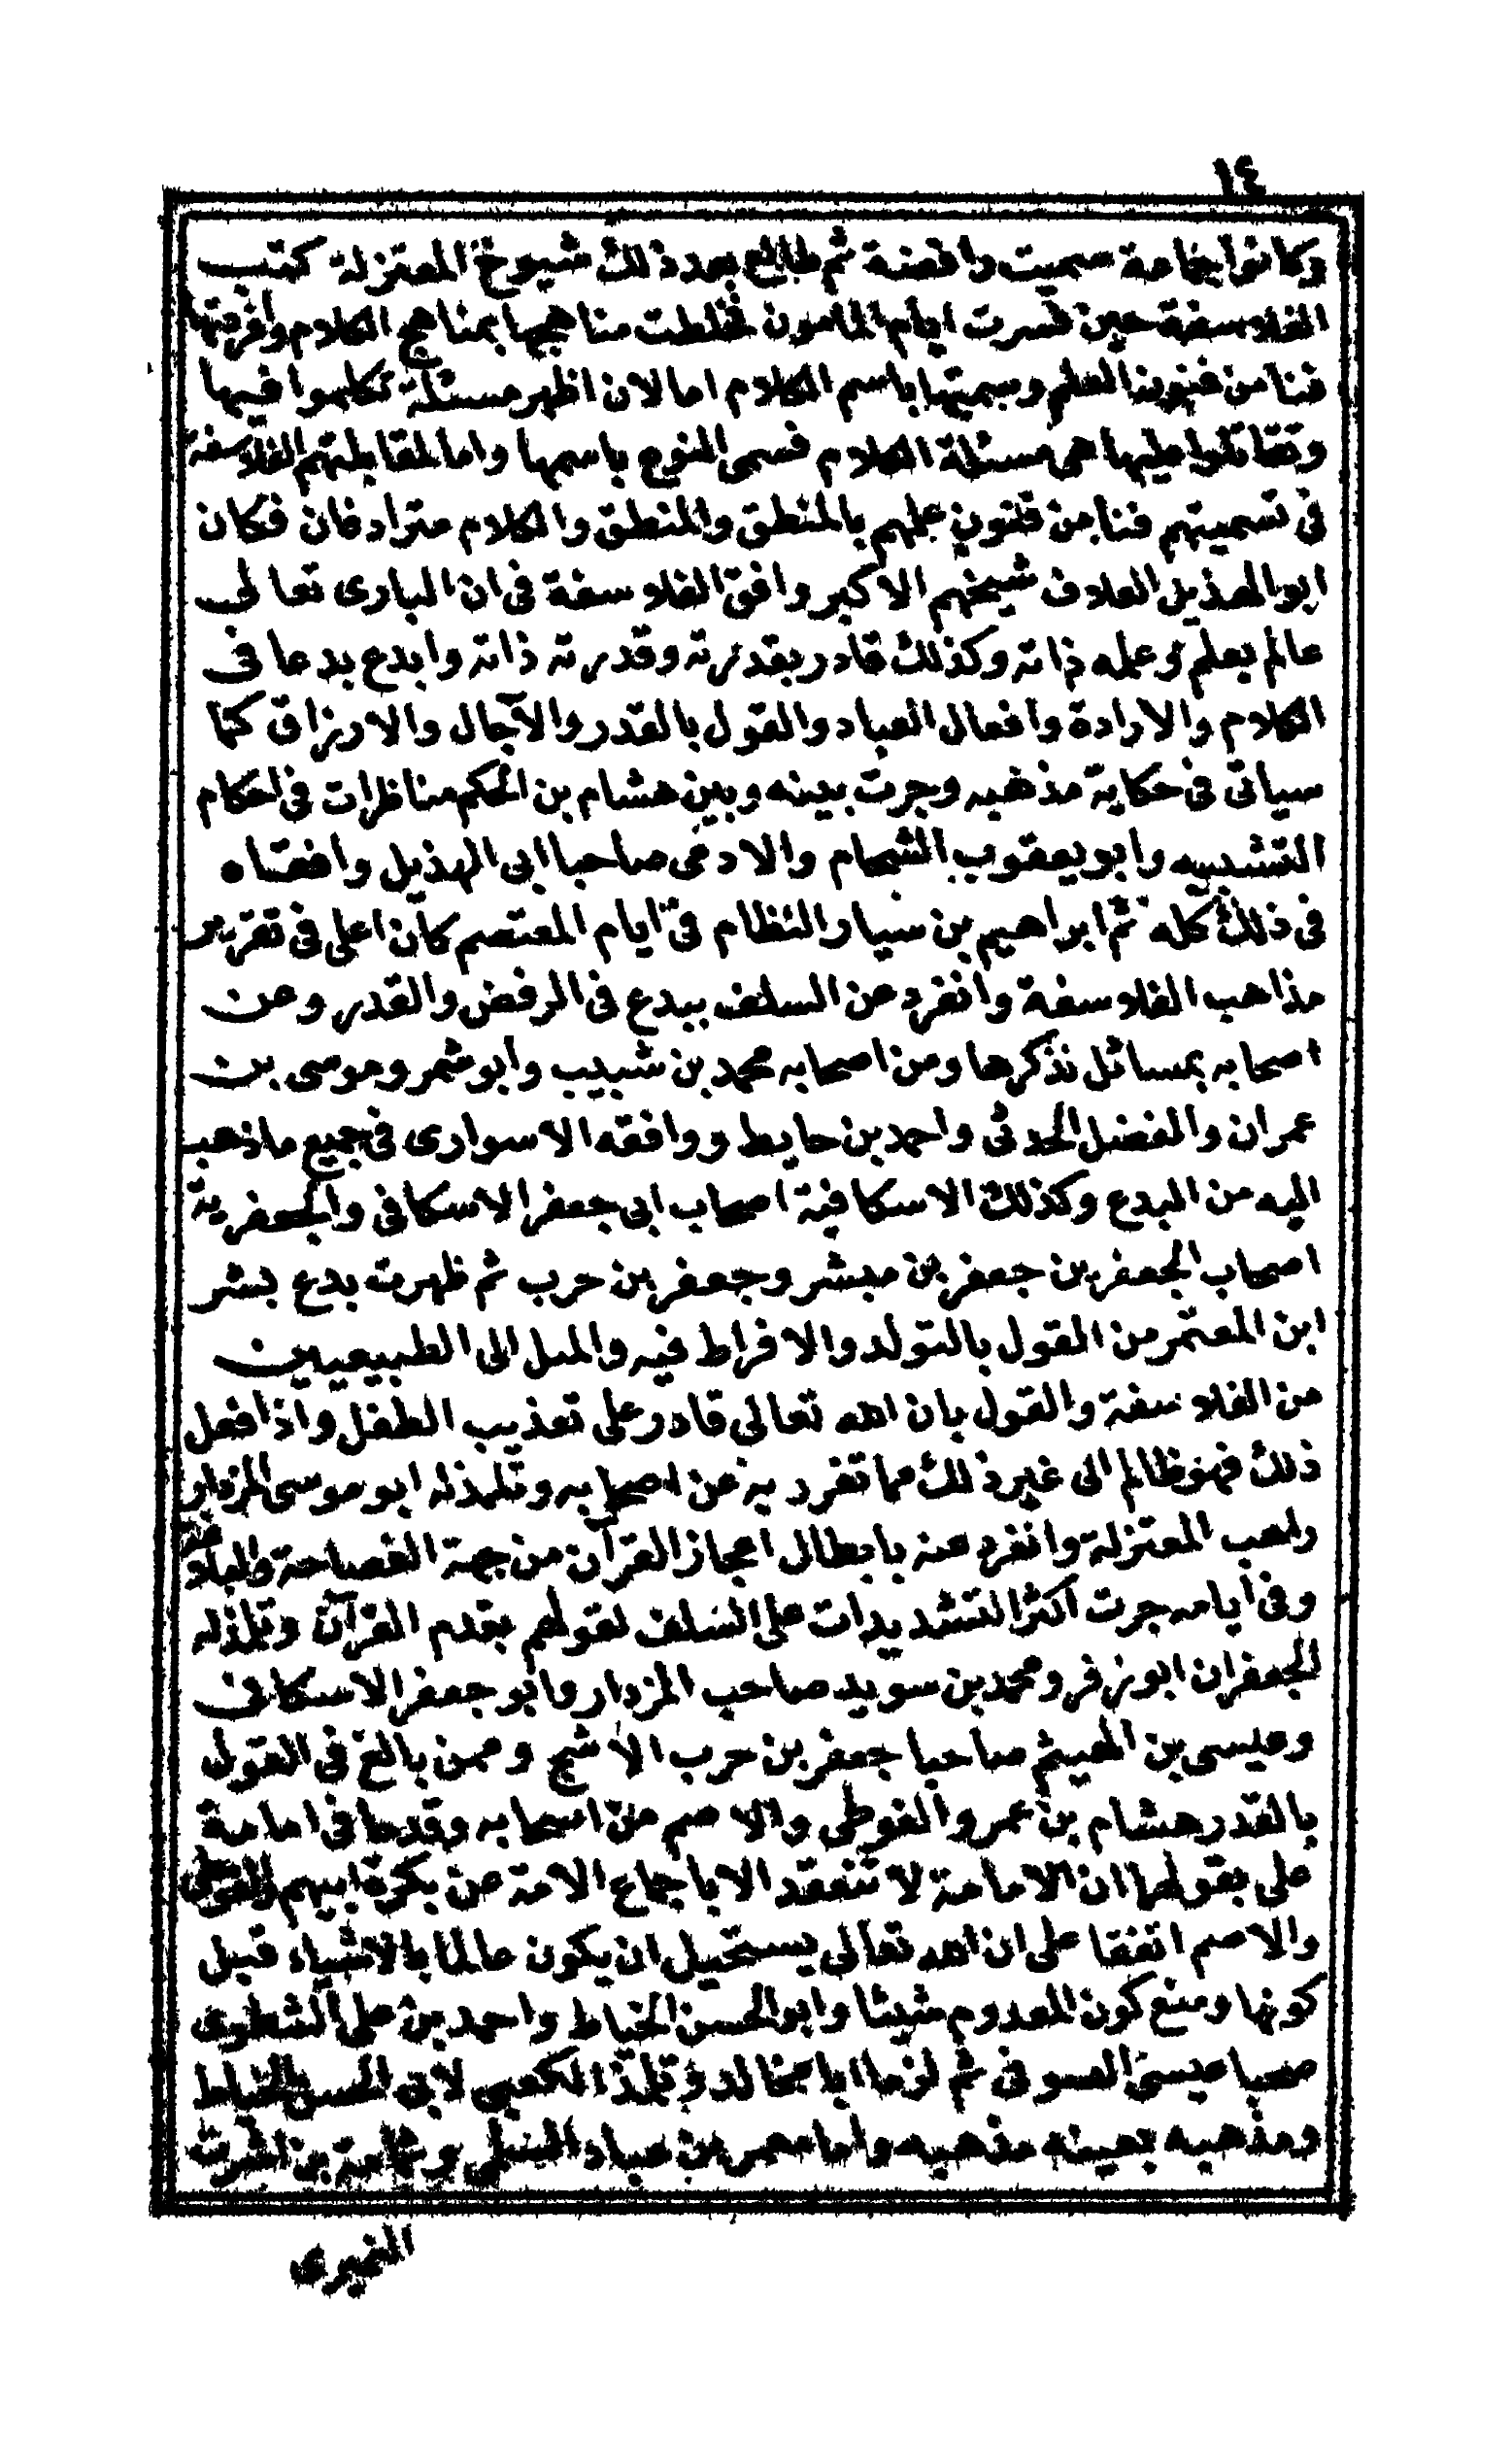 ١٤
وكانوا جماعة سميت رافضة ثم طالع بعد ذلك شيوخ المعتزلة كتب
الفلاسفة حين فسرت ايام المامون فخلطت مناهجها بمناهج الكلام وافرزتها
فنا من فنون العلم وسمتها باسم الكلام اما لان اظهر مسئلة تكلموا فيها
وتقاتلوا عليها هى مسئلة الكلام فسمى النوع باسمها واما لمقابلتهم الفلاسفة
فى تسميتهم فنا من فنون علمهم بالمنطق والمنطق والكلام مترادفان فكان
ابو الهذيل العلاف شيخهم الاكبر وافق الفلاسفة فى ان البارى تعالى
عالم بعلم وعلمه ذاته وكذلك قادر بقدرته وقدرته ذاته وابدع بدعا فى
الكلام والارادة وافعال العباد والقول بالقدر والآجال والارزاق كما
سياتى فى حكاية مذهبه وجرت بينه وبين هشام بن الحكم مناظرات فى احكام
التشبيه وابو يعقوب الشحام والادمى صاحبا ابى الهذيل وافقاه
فى ذلك كله ثم ابراهيم بن سيار النظام فى ايام المعتصم كان اعلى فى تقرير
مذاهب الفلاسفة وانفرد عن السلف ببدع فى الرفض والقدر وعن
اصحابه بمسائل نذكرها ومن اصحابه محمد بن شبيب وابو شمر وموسى بن
عمران والفضل الحدثى واحمد بن حايط ووافقه الاسوارى فى جميع ما ذهب
اليه من البدع وكذلك الاسكافية اصحاب ابى جعفر الاسكافى والجعفرية
اصحاب الجعفرين جعفر بن مبشر وجعفر بن حرب ثم ظهرت بدع بشر
ابن المعتمر من القول بالتولد والافراط فيه والميل الى الطبيعيين
من الفلاسفة والقول بان الله تعالى قادر على تعذيب الطفل واذا فعل
ذلك فهو ظالم الى غير ذلك مما تفرد به عن اصحابه وتلمذ له ابو موسى المزدار
راهب المعتزلة وانفرد عنه بابطال اعجاز القرآن من جهة الفصاحة والبلاغة
وفى ايامه جرت اكثر التشديدات على السلف لقولهم بقدم القرآن وتلمذ له
الجعفران ابو زفر ومحمد بن سويد صاحب المزدار وابو جعفر الاسكافى
وعيسى بن الهيثم صاحبا جعفر بن حرب الاشج وممن بالغ فى القول
بالقدر هشام بن عمرو الفوطى والاصم من اصحابه وقدحا فى امامة
على بقولهما ان الامامة لا تنعقد الا باجماع الامة عن بكرة ابيهم والفوطى
والاصم اتفقا على ان الله تعالى يستحيل ان يكون عالما بالاشياء قبل
كونها ومنع كون المعدوم شيئا وابو الحسن الخياط واحمد بن على الشطوى
صحبا عيسى الصوفى ثم لزما ابا مجالد وتلمذ الكعبى لابى الحسن الخياط
ومذهبه بعينه مذهبه واما معمر بن عباد السلمى وثمامة بن اشرث
النميرى